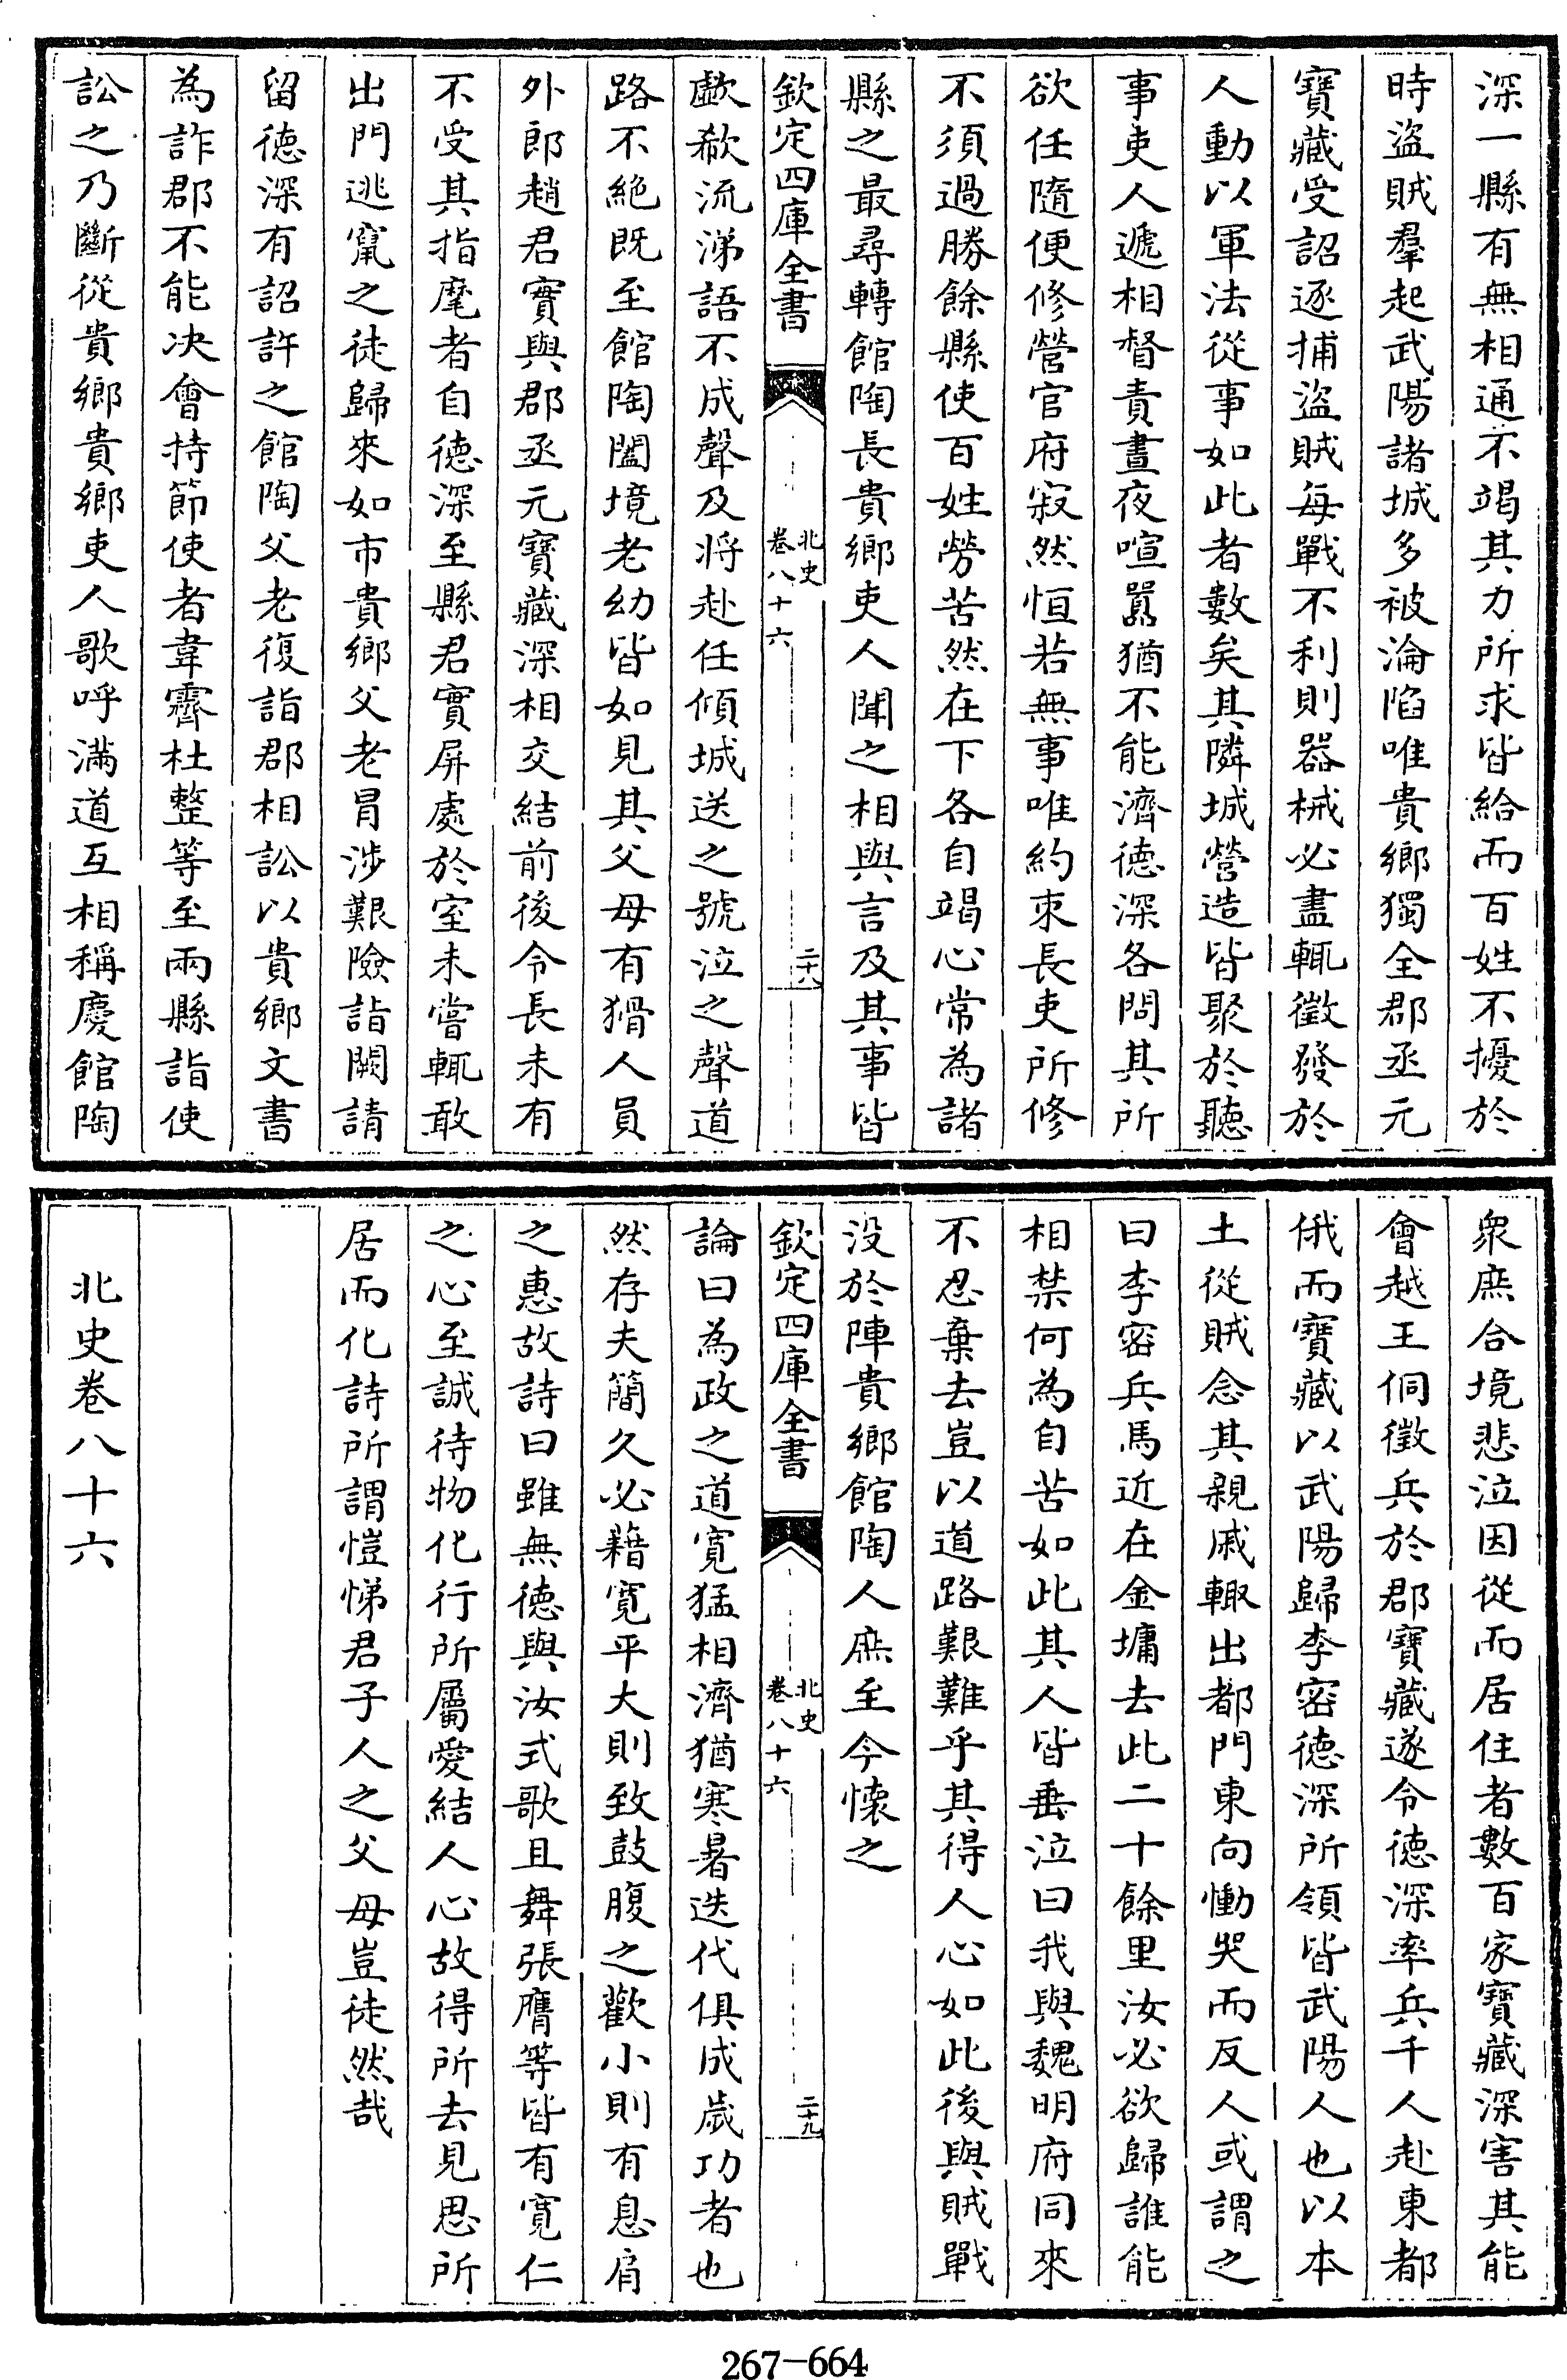 深一縣有無相通不竭其力所求皆給而百姓不擾於
時盜賊羣起武陽諸城多被淪陷唯貴鄉獨全郡丞元
寶藏受詔逐捕盜賊每戰不利則器械必盡輒徵發於
人動以軍法從事如此者數矣其隣城營造皆聚於聽
事吏人遞相督責晝夜喧囂猶不能濟德深各問其所
欲任隨便修營官府寂然恒若無事唯約束長吏所修
不須過勝餘縣使百姓勞苦然在下各自竭心常為諸
縣之最尋轉館陶長貴鄉吏人聞之相與言及其事皆
欽定四庫全書
北史
卷八十六
二十八
歔欷流涕語不成聲及將赴任傾城送之號泣之聲道
路不絶既至館陶闔境老幼皆如見其父母有猾人員
外郎趙君實與郡丞元寶藏深相交結前後令長未有
不受其指麾者自德深至縣君實屏處於室未嘗輒敢
出門逃竄之徒歸來如市貴鄉父老冒涉艱險詣闕請
留德深有詔許之館陶父老復詣郡相訟以貴鄉文書
為詐郡不能决會持節使者韋霽杜整等至兩縣詣使
訟之乃斷從貴鄉貴鄉吏人歌呼滿道互相稱慶館陶
衆庶合境悲泣因從而居住者數百家寶藏深害其能
會越王侗徵兵於郡寶藏遂令德深率兵千人赴東都
俄而寶藏以武陽歸李密德深所領皆武陽人也以本
土從賊念其親戚輙出都門東向慟哭而反人或謂之
曰李密兵馬近在金墉去此二十餘里汝必欲歸誰能
相禁何為自苦如此其人皆垂泣曰我與魏明府同來
不忍棄去豈以道路艱難乎其得人心如此後與賊戰
没於陣貴鄉館陶人庶至今懷之
欽定四庫全書
北史
卷八十六
二十九
論曰為政之道寛猛相濟猶寒暑迭代俱成歲功者也
然存夫簡久必藉寛平大則致鼓腹之歡小則有息肩
之惠故詩曰雖無德與汝式歌且舞張膺等皆有寛仁
之心至誠待物化行所屬愛結人心故得所去見思所
居而化詩所謂愷悌君子人之父母豈徒然哉
北史卷八十六
267-664